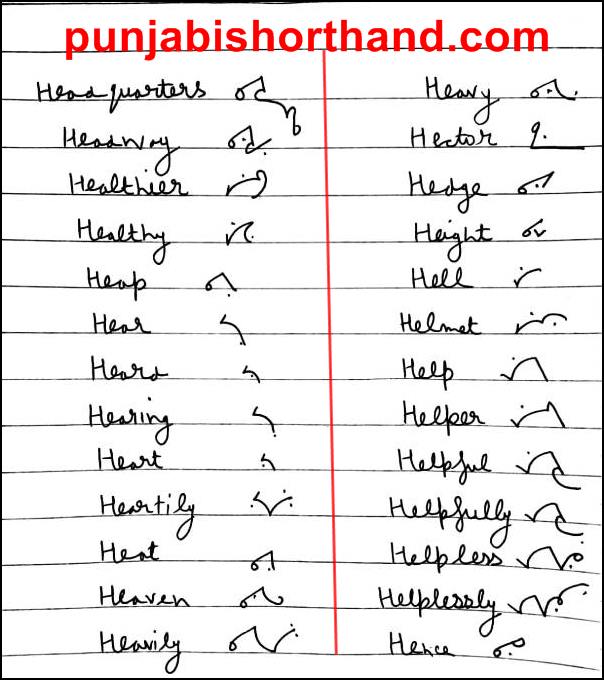 punjabishorthand.com
Headquarters
Headway
Healthier
Healthy
Heap
Hear
Heard
Hearing
Heart
Heartily
Heat
Heaven
Heavily
Heavy
Hector
Hedge
Height
Hell
Helmet
Help
Helper
Helpful
Helpfully
Helpless
Helplessly
Hence